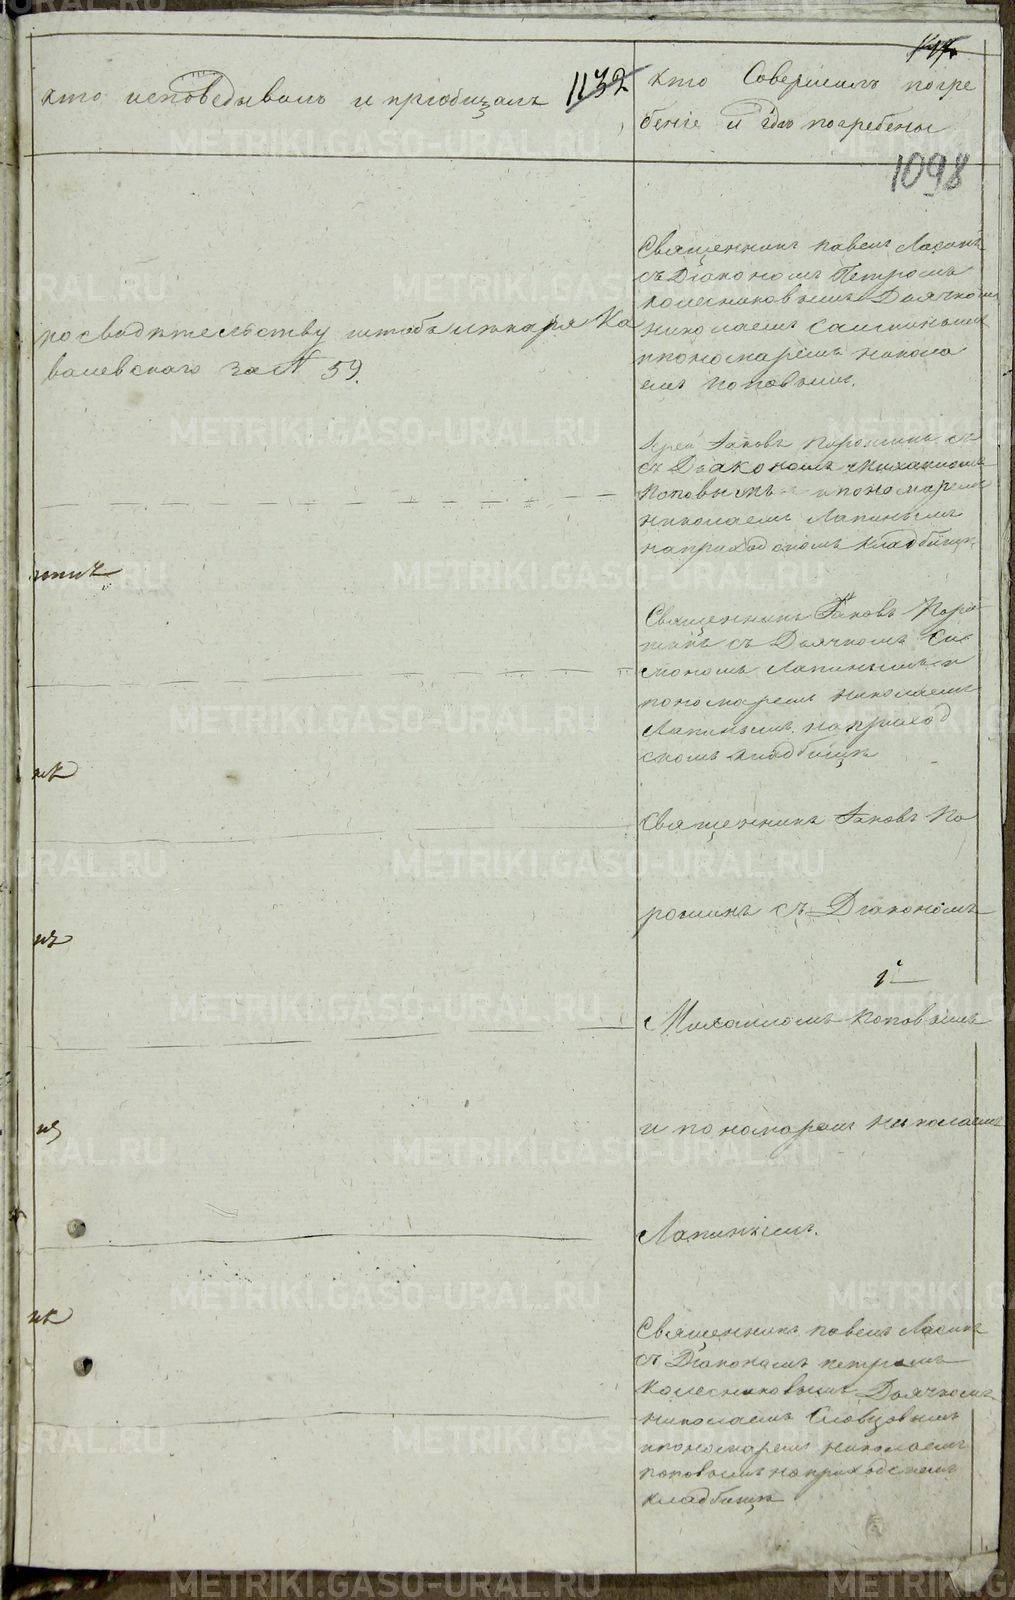 кто исповедывалъ и приобщалъ
1132
кто Совершалъ погре
бенiе и где погребены
1098
Священникъ павелъ
съ Дiакономъ Петромъ
колесниковымъ Дьячкомъ
николаемъ
ипономаремъ никола
емъ поповымъ.
по свидѣтельству штабълѣкаря Ко
валевскаго за № 59.
Iерей Iаковъ порошинъ съ
съ Дьякономъ михаиломъ
поповымъ ипономаремъ
николаемъ Лапинымъ
наприходскомъ кладбищѣ
Священникъ Iаковъ Поро
шинъ съ Дьячкомъ Си
мономъ Лапинымъ и
пономаремъ николаемъ
Лапинымъ наприход
скомъ кладбищѣ
Священникъ Iаковъ По
рошинъ съ Дiакономъ
Михаиломъ поповымъ
и пономаремъ николаемъ
Лапинымъ.
Священникъ павелъ
съ Дiакономъ петромъ
колесниковымъ Дьячкомъ
николаемъ Словцовымъ
ипономаремъ николаемъ
поповымъ наприходскомъ
кладбищѣ
METRIKI.GASO-URAL.RU